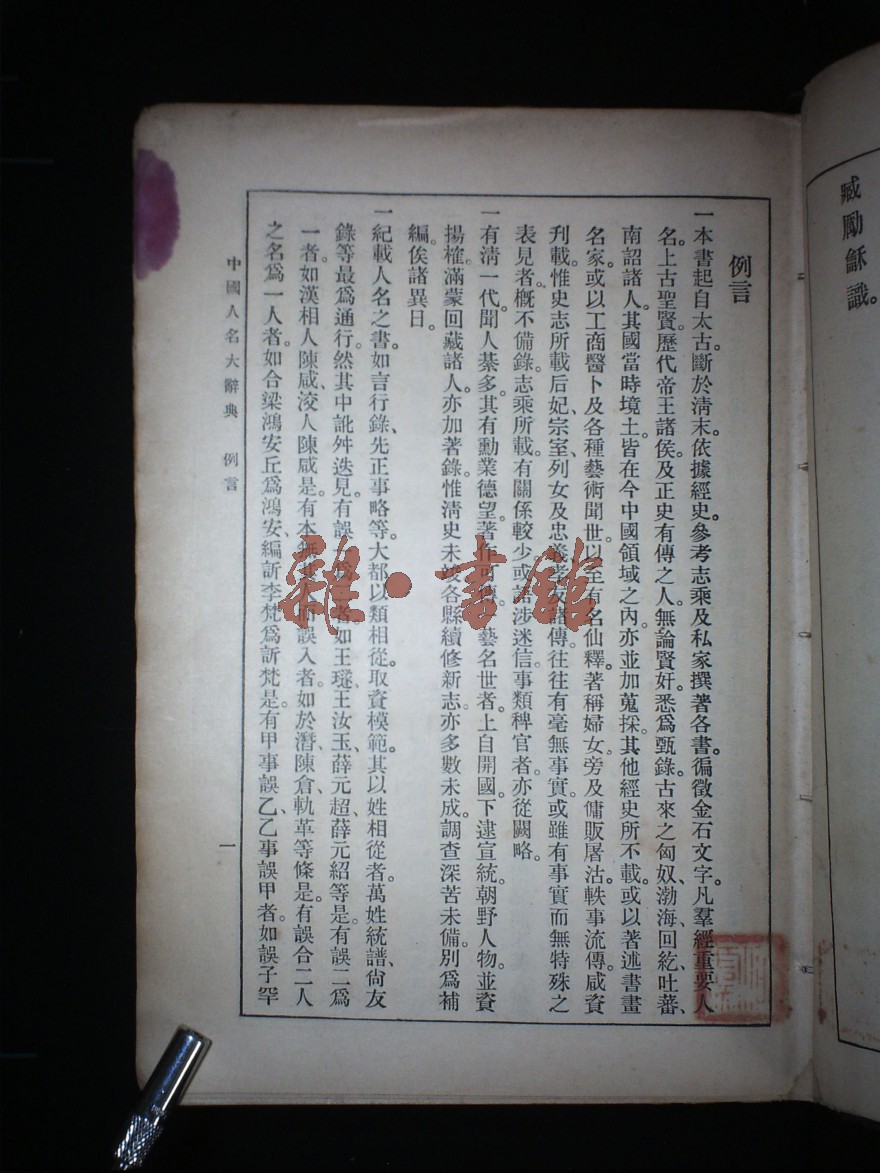 臧勵龢識。
例言
一本書起自太古。斷於淸末。依據經史。參考志乘及私家撰著各書。徧徵金石文字。凡羣經重要人
名。上古聖賢。歷代帝王諸侯。及正史有傳之人。無論賢奸。悉爲甄錄。古來之匈奴、渤海、回紇、吐蕃、
南詔諸人。其國當時境土。皆在今中國領域之內。亦並加蒐採。其他經史所不載。或以著述書畫
名家。或以工商醫卜及各種藝術聞世。以至有名仙釋。著稱婦女。旁及傭販屠沽。軼事流傳。咸資
刋載。惟史志所載后妃、宗室、列女及忠義孝友諸傳。往往有毫無事實。或雖有事實而無特殊之
表見者。槪不備錄。志乘所載。有關係較少。或涉迷信。事類稗官者。亦從闕略。
一有淸一代。聞人綦多。其有勳業德望。著作可傳。藝名世者。上自開國。下逮宣統。朝野人物。並資
揚榷。滿蒙回藏諸人。亦加著錄。惟淸史未竣。各縣續修新志。亦多數未成。調查深苦未備。別爲補
編。俟諸異日。
一紀載人名之書。如言行錄、先正事略等。大都以類相從。取資模範。其以姓相從者。萬姓統譜、尙友
錄等最爲通行。然其中訛舛迭見。有誤一爲二者。如王璲、王汝玉、薛元超、薛元紹等是。有誤二爲
一者。如漢相人陳咸、洨人陳咸是。有本無其人而誤入者。如於潛、陳倉、軌革等條是。有誤合二人
之名爲一人者。如合梁鴻安丘爲鴻安、編訢李梵爲訢梵是。有甲事誤乙、乙事誤甲者。如誤子罕
中國人名大辭典 例言
一
雜·書館